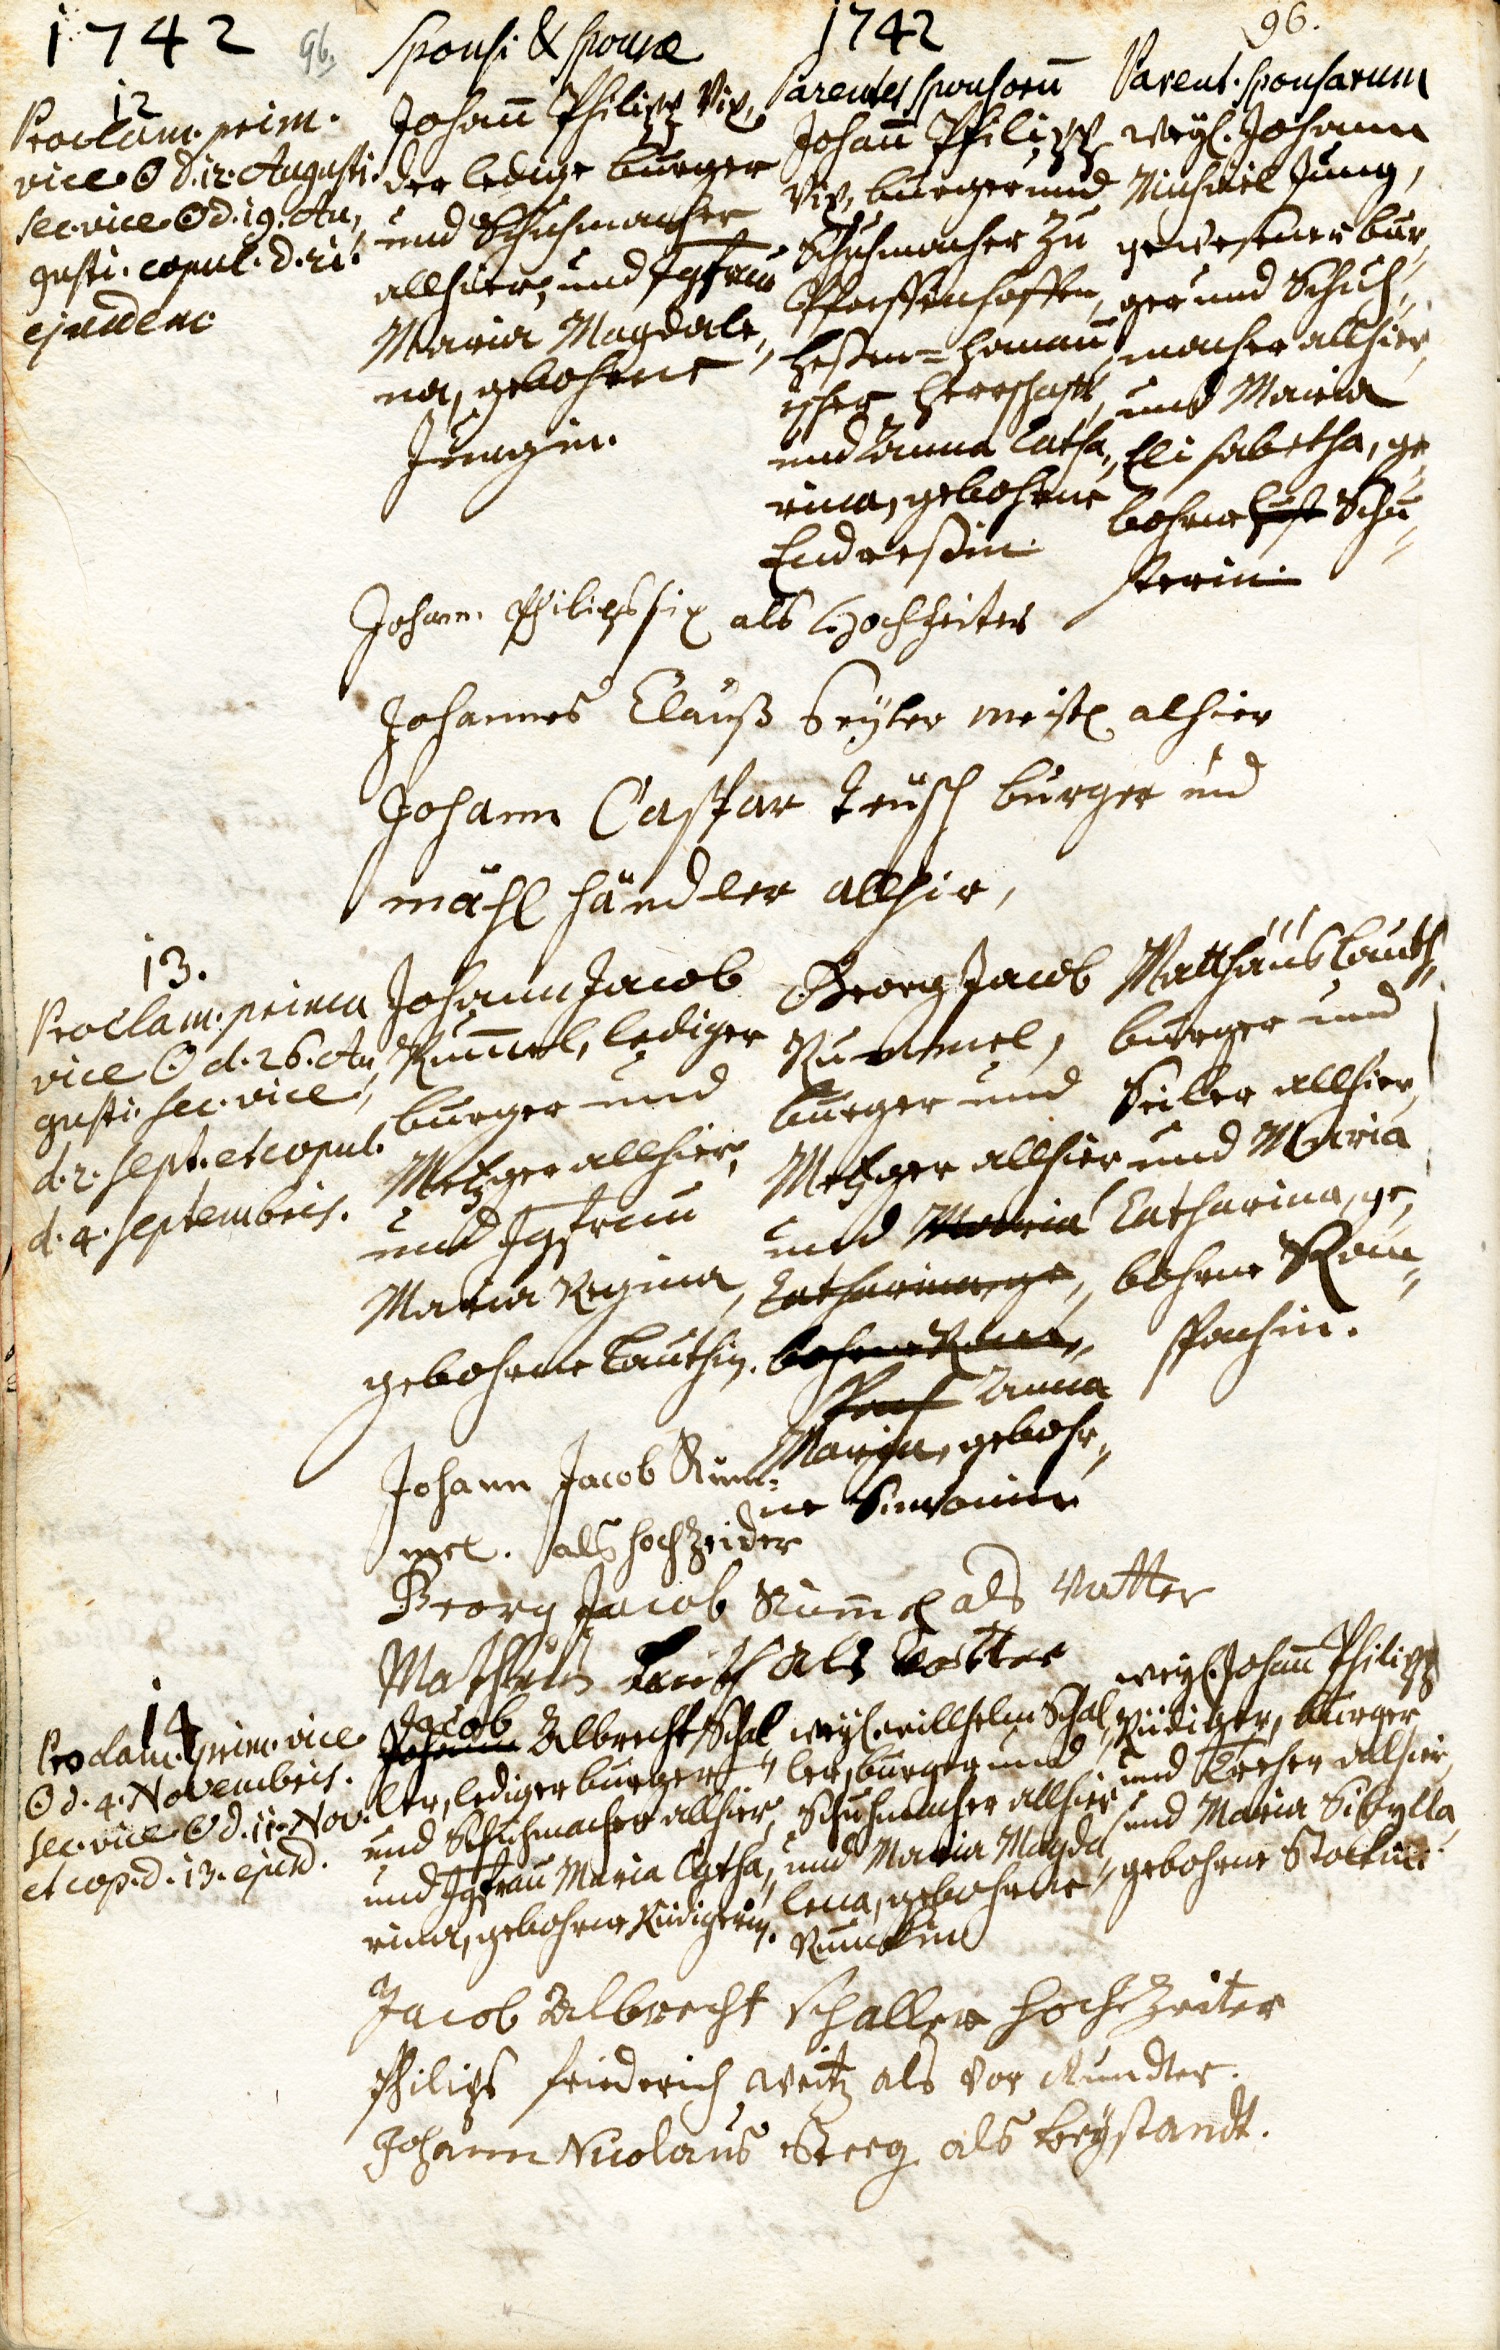 1742
96.
Sponsi & Sponsæ
1742
96.
Parentes Sponsorū
Parent. Sponsarum
12
Proclam. prim.
vice ☉ d. 12. Augusti.
sec. vice ☉ d. 19. Au„
gusti. copul. d. 21.
ejusdem.
Johañ Philipp Six,
der ledige burger
und Schuhmacher
allhier, und Jgfrau
Maria Magdale„
na, gebohrne
Jungin.
Johañ Philipp
Six, burger und
Schuhmacher zu
Pfaffenhoffen,
Heßen=Hanaui„
scher Herrschafft,
und Anna Catha„
rina, gebohrne
Endreßin.
weyl. Johann
Michael Jung,
gewesener bur„
ger und Schuh„
macher allhier,
und Maria
Elisabetha, ge„
bohrne Schu„
sterin.
Johann Philipps six als Hochzeiter
Johannes Clauß Seyler meister alhier
Johann CasparReüsch burger und
mähl händler allhir,
13.
Proclam. prima
vice ☉ d. 26. Au„
gusti. sec. vice
d. 2. Sept. et copul.
d. 4. Septembris.
Johann Jacob
Rum̃el, lediger
burger und
Metzger allhier,
und Jgfrau
Maria Regina,
gebohrne Lauthin.
Georg Jacob
Rummel,
burger und
Metzger allhier
und Maria
Catharina, ge„
bohrne Ram„
spach Anna
Maria, gebohr„
ne Simonin
Matthäus Lauth,
burger und
Seiler allhier,
und Maria
Catharina, ge„
bohrne Ram„
spachin.
Johann Jacob Rum=
mel. als hochzeider
Georg Jacob Rum̃el als Vatter
Mathäus Lauth als Vatter
14
Proclam. prim. vice
☉ d. 4. Novembris.
sec. vice ☉ d. 11. Nov.
et cop. d. 13. ejusd.
Jacob
Johann Albrecht Schal„
ler, lediger burger
und Schuhmacher allhier,
und Jgfrau Maria Catha„
rina, gebohrne Rüdigerin.
weyl. Willhelm Schal„
ler, burger und
Schuhmacher allhier
und Maria Magda„
lena, gebohrne
weyl. Johañ Philipp
Rüdiger, burger
und allhier,
und Maria Sibylla,
gebohrne Stockin.
Jacob Albrecht schaller hochzeiter
Philips friederich weitz als vor Mundter.
Johann Nicolaus Steeg als beystandt.